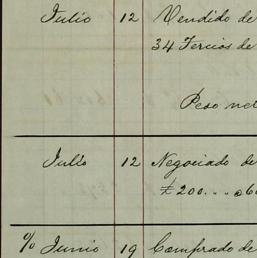 Julio 12 Vendido de
34 Tercios de
Peso net
Julio 12 Negociado de
£ 200. . . @ 6
% Junio 19 Comprado de